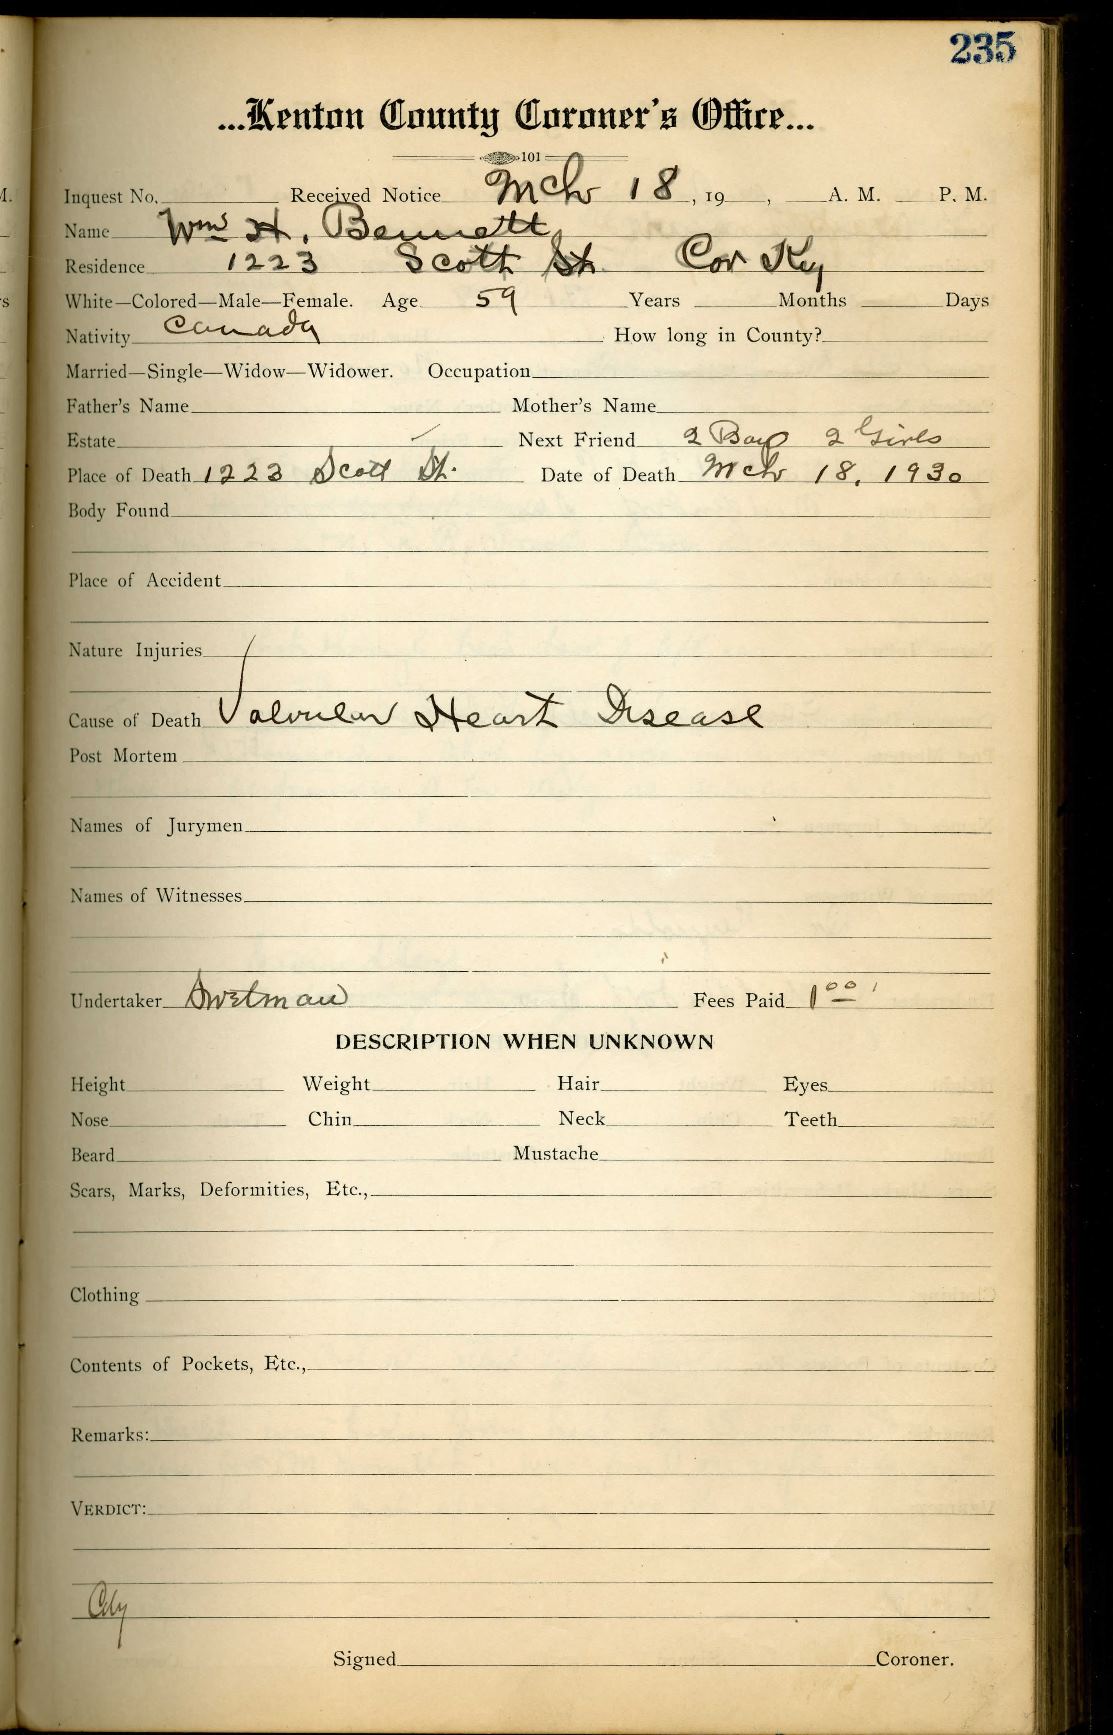 235
...Kenton County Coroner's Office...
101
Inquest No. Received Notice Mch 18, 19 , A. M. P. M.
Name Wm H. Bennett
Residence 1223 Scott St. Cov Ky
White—Colored—Male—Female. Age 59 Years Months Days
Nativity Canada How long in County?
Married—Single—Widow—Widower. Occupation
Father's Name Mother's Name
Estate Next Friend 2 Boys 2 Girls
Place of Death 1223 Scott St. Date of Death Mch 18, 1930
Body Found
Place of Accident
Nature Injuries
Cause of Death Valvular Heart Disease
Post Mortem
Names of Jurymen
Names of Witnesses
Undertaker Swetman Fees Paid 1 00
DESCRIPTION WHEN UNKNOWN
Height Weight Hair Eyes
Nose Chin Neck Teeth
Beard Mustache
Scars, Marks, Deformities, Etc.,
Clothing
Contents of Pockets, Etc.,
Remarks:
VERDICT:
City
Signed Coroner.